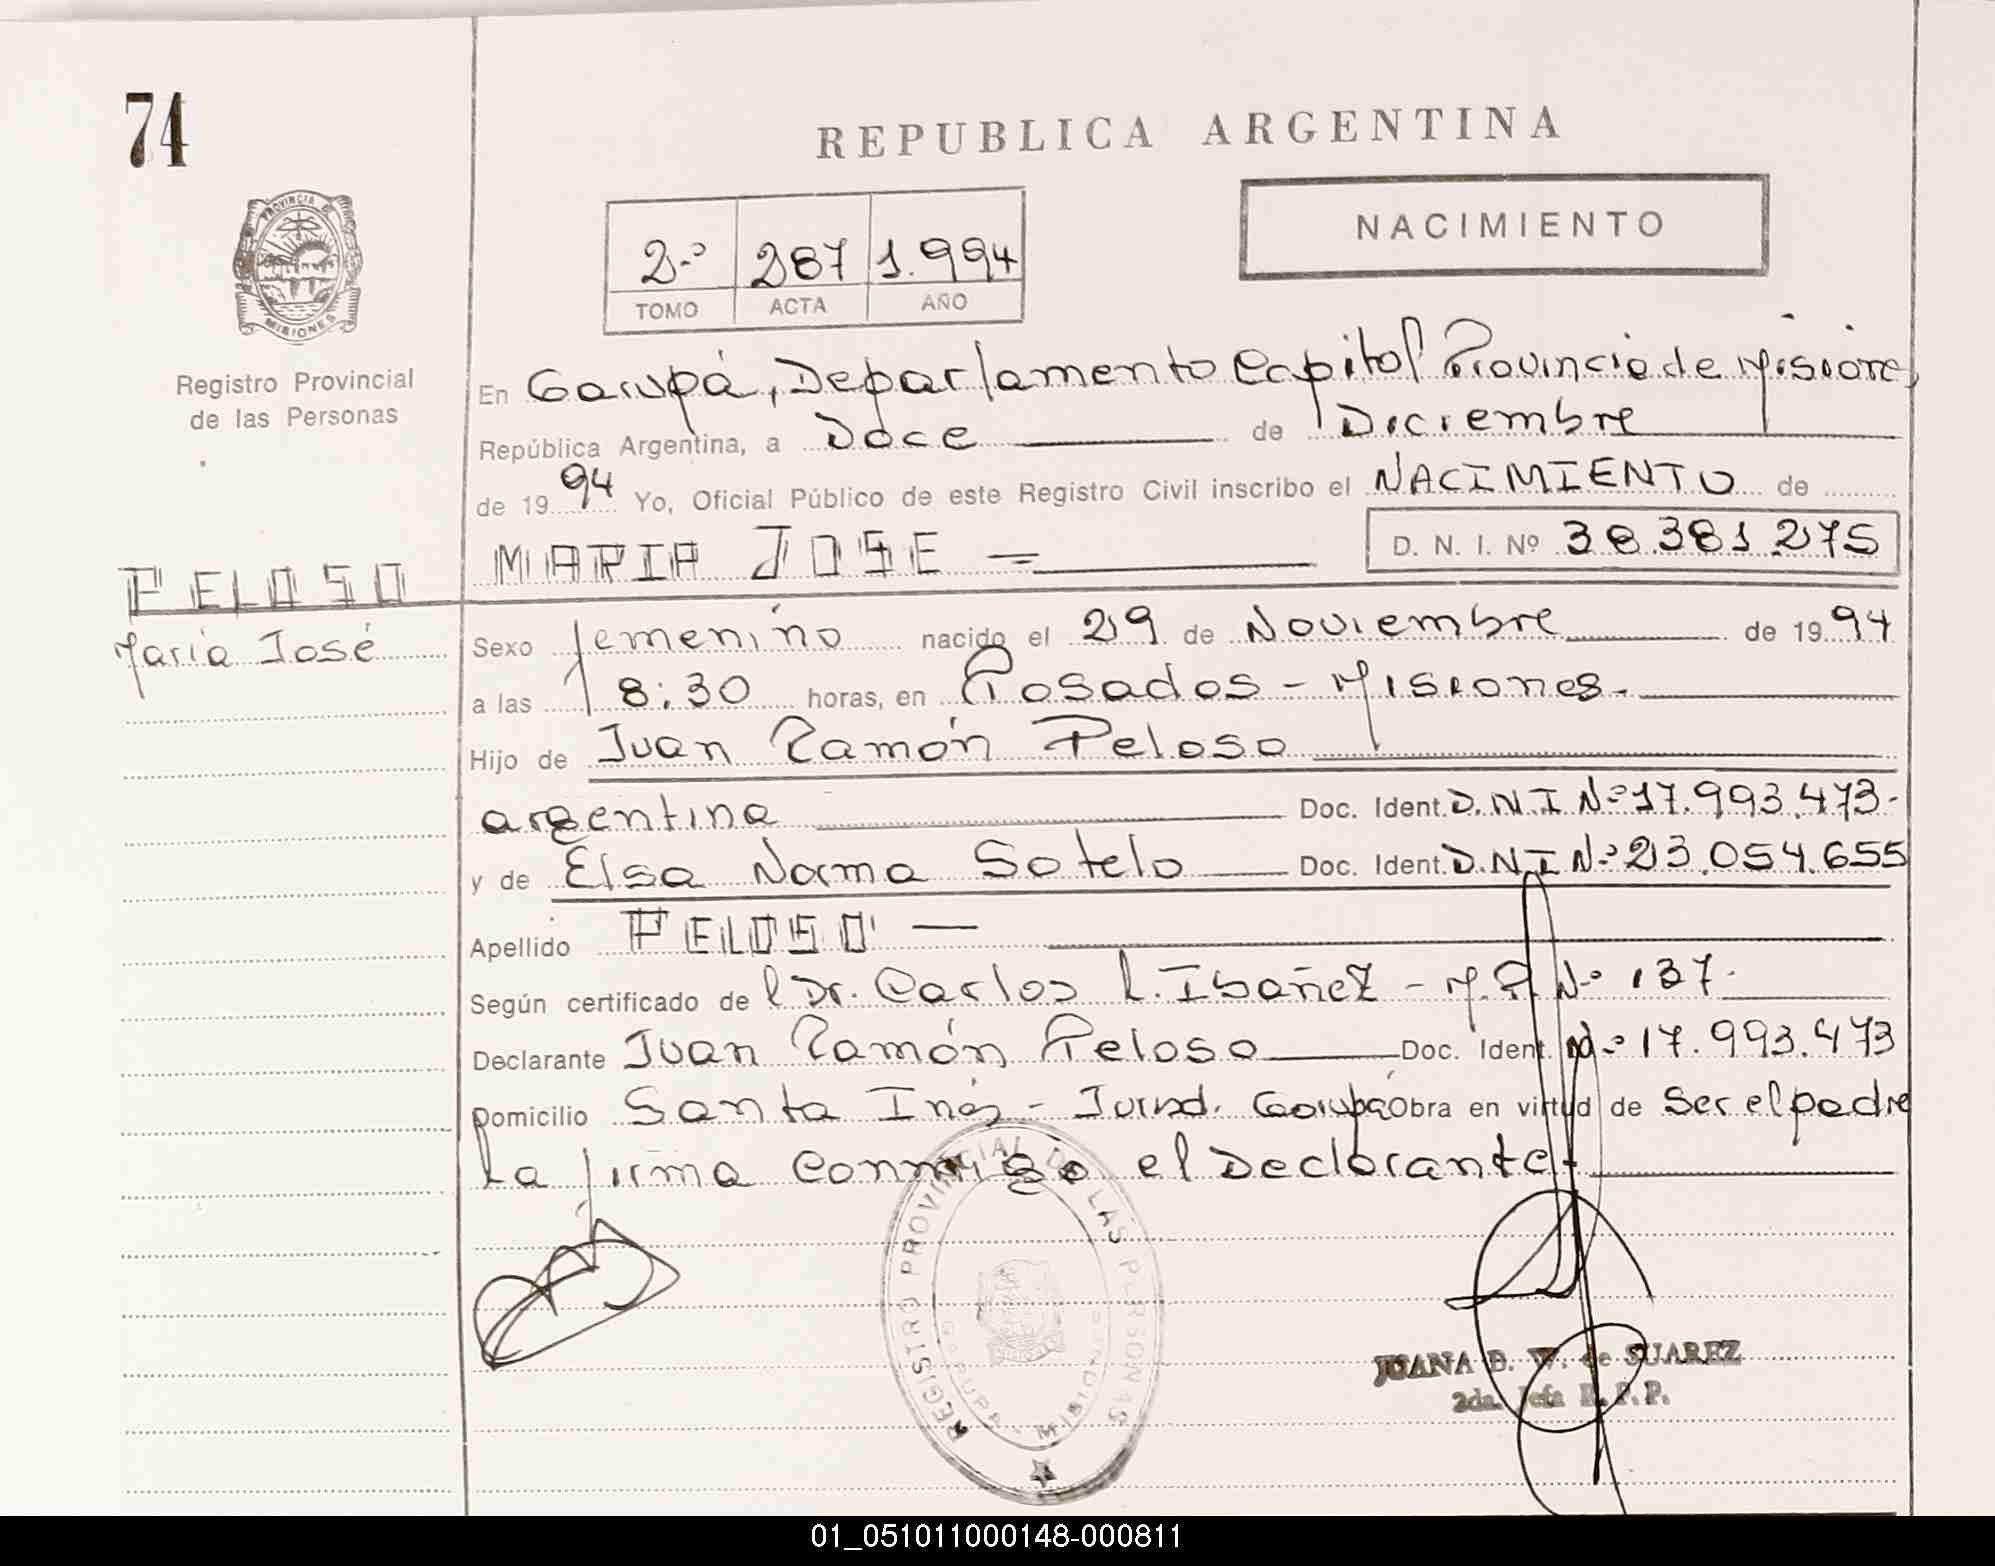 74
REPUBLICA ARGENTINA
NACIMIENTO
PROVINCIA DE
MISIONES
2º 287 1.994
TOMO ACTA AÑO
Registro Provincial
de las Personas
En Garupá, Departamento Capital Provincia de Misiones,
República Argentina, a Doce de Diciembre
de 1994 Yo, Oficial Público de este Registro Civil inscribo el NACIMIENTO de
MARIA JOSE =
D. N. I. Nº 38.381.275
PELOSO
María José
Sexo femenino nacido el 29 de Noviembre de 1994
a las 18:30 horas, en Posadas - Misiones.
Hijo de Juan Ramón Peloso
argentina Doc. Ident. D.N.I Nº 17.993.473-
y de Elsa Norma Sotelo Doc. Ident. D.N.I Nº 23.054.655
Apellido PELOSO —
Según certificado del Dr. Carlos L. Ibañez - M.P. Nº 137.
Declarante Juan Ramón Peloso Doc. Ident. Nº 17.993.473
Domicilio Santa Inés - Jurisd. Garupá Obra en virtud de Ser el padre
La firma conmigo el Declarante
REGISTRO PROVINCIAL DE LAS PERSONAS
GARUPA MISIONES
JUANA B. W. de SUAREZ
2da. Jefa R. P. P.
01_051011000148-000811